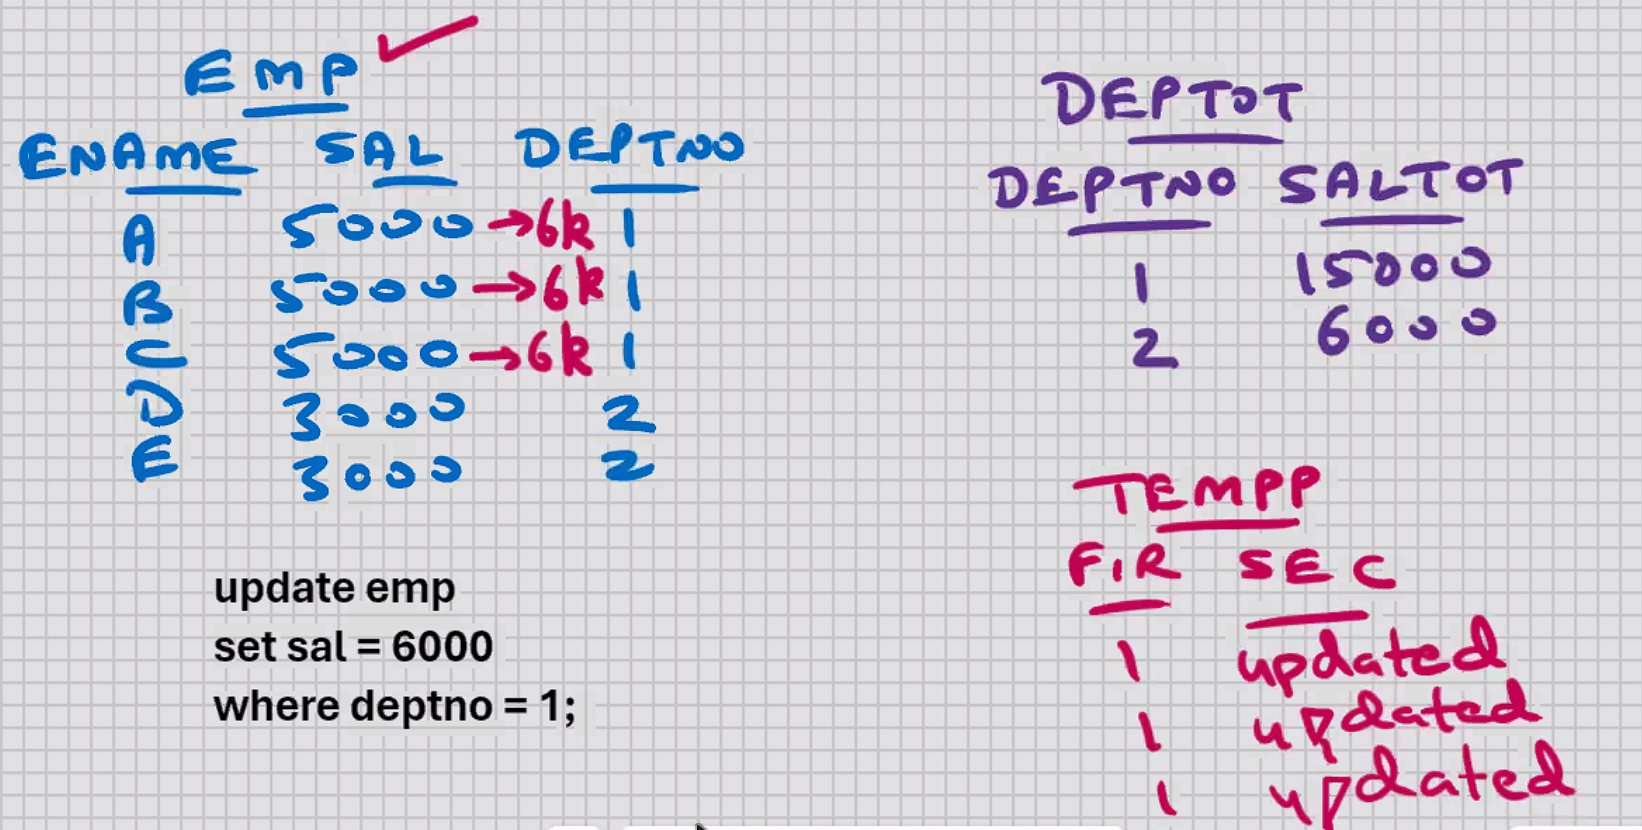 EMP
ENAME SAL DEPTNO
A 5000 →6k 1
B 5000 →6k 1
C 5000 →6k 1
D 3000 2
E 3000 2
update emp
set sal = 6000
where deptno = 1;
DEPTOT
DEPTNO SALTOT
1 15000
2 6000
TEMPP
FIR SEC
1 updated
1 updated
1 updated